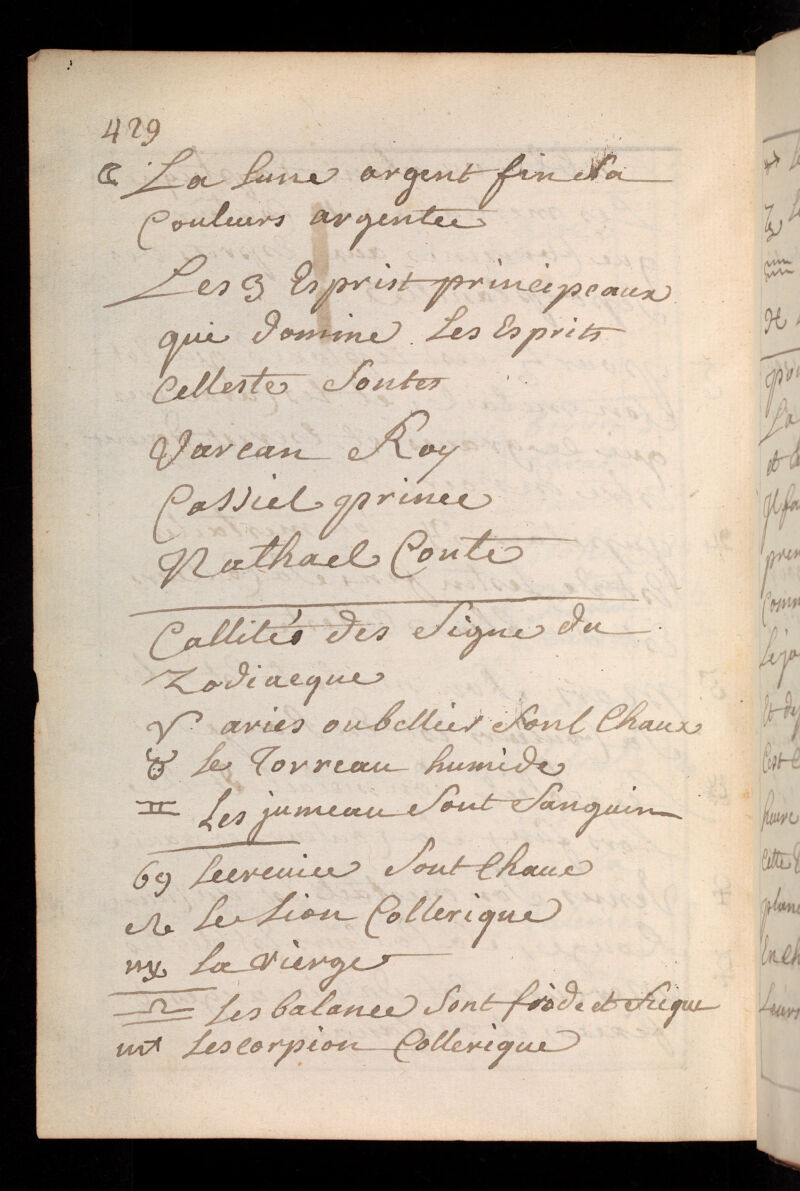 429
☾ La lune argent fin Sa
Couleurs argentee
Les 3 Esprist principeaux
qui domine Les Esprits
Celleste Sontes
Varcan Roy
Cassiel prince
Nathael Conte
Callités des Signe du
Zodiacque
♈ aries oubellier Sont Chaux
♉ le Torreau humide
♊ Les jumeau Sont Sanguin
♋ Lecrevice Sont Chaue
♌ Le Lion Collerique
♍ La vierge
♎ Les balance Sont froide et Sieque
♏ Lescorpion Collerique